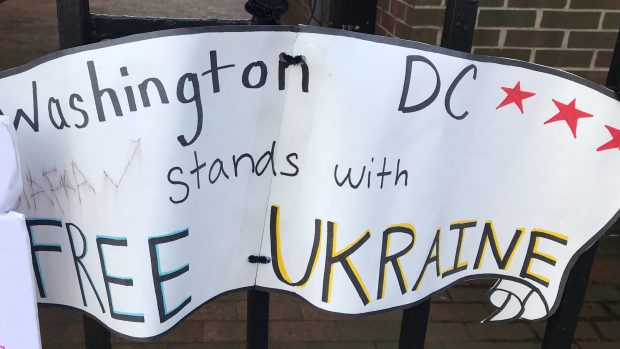 Washington DC
stands with
FREE UKRAINE